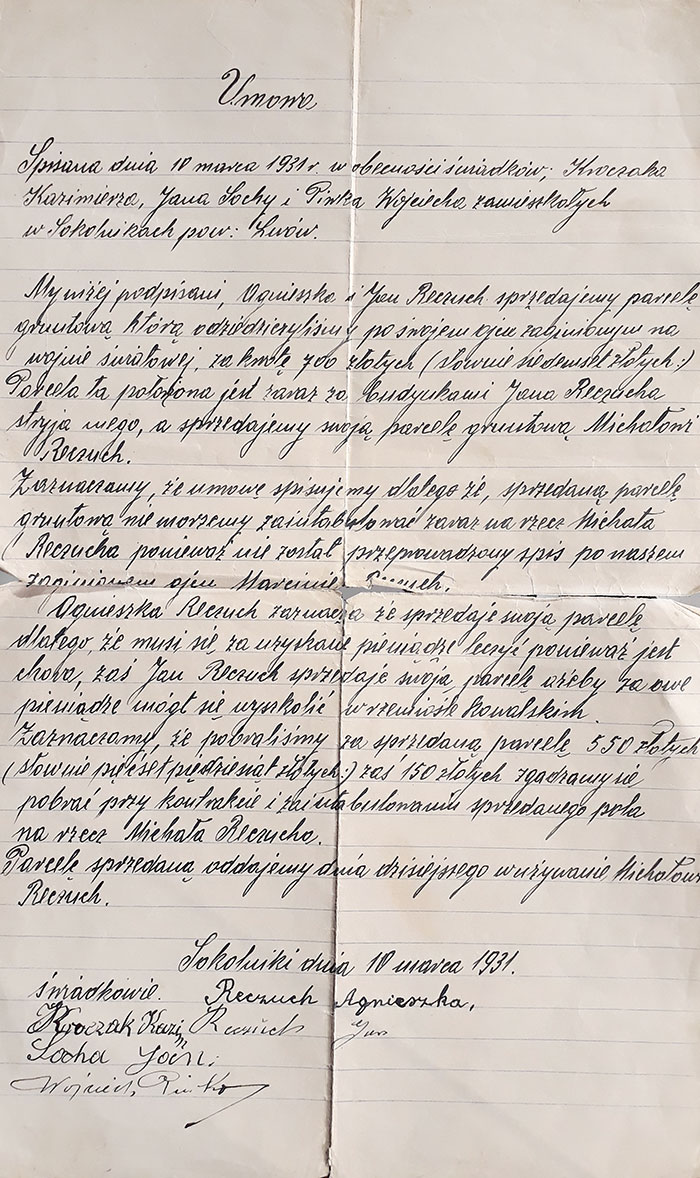 Umowa
Spisana dnia 10 marca 1931 r. w obecności świadków; Kroczaka
Kazimierza, Jana Sochy i Pińka Wojciecha zamieszkołych
w Sokolnikach pow: Lwów.
My niżej podpisani, Agnieszka i Jan Reczuch sprzedajemy parcelę
gruntową którą odziedziczyliśmy po swojem ojcu zaginionym na
wojnie światowej, za kwotę 700 złotych (słownie siedemset złotych:)
Parcela ta położona jest zaraz za budynkami Jana Reczucha
stryja mego, a sprzedajemy swoją parcelę gruntową Michałowi
Reczuch.
Zaznaczamy, że umowę spisujemy dlatego że, sprzedaną parcelę
gruntową nie morzemy zaintabulować zaraz na rzecz Michała
Reczucha ponieważ nie został przeprowadzony spis po naszem
zaginionem ojcu Marcinie Reczuch.
Agnieszka Reczuch zaznacza że sprzedaje swoją parcelę
dlatego, że musi się za uzyskane pieniądze leczyć ponieważ jest
chora, zaś Jan Reczuch sprzedaje swoja parcelę ażeby za owe
pieniądze mógł się wyszkolić w rzemiośle kowalskim.
Zaznaczamy, że pobraliśmy za sprzedaną parcelę 550 złotych
(słownie pięćset piędziesiąt złotych:) zaś 150 złotych zgadzamy się
pobrać przy kontrakcie i zaintabulowaniu sprzedanego pola
na rzecz Michała Reczucha.
Parcelę sprzedaną oddajemy dnia dzisiejszego w używanie Michałowi
Reczuch.
Sokolniki dnia 10 marca 1931.
świadkowie. Reczuch Agnieszka.
Kroczak Kazim Reczuch Jan
Socha Jan.
Wojciech Pińko